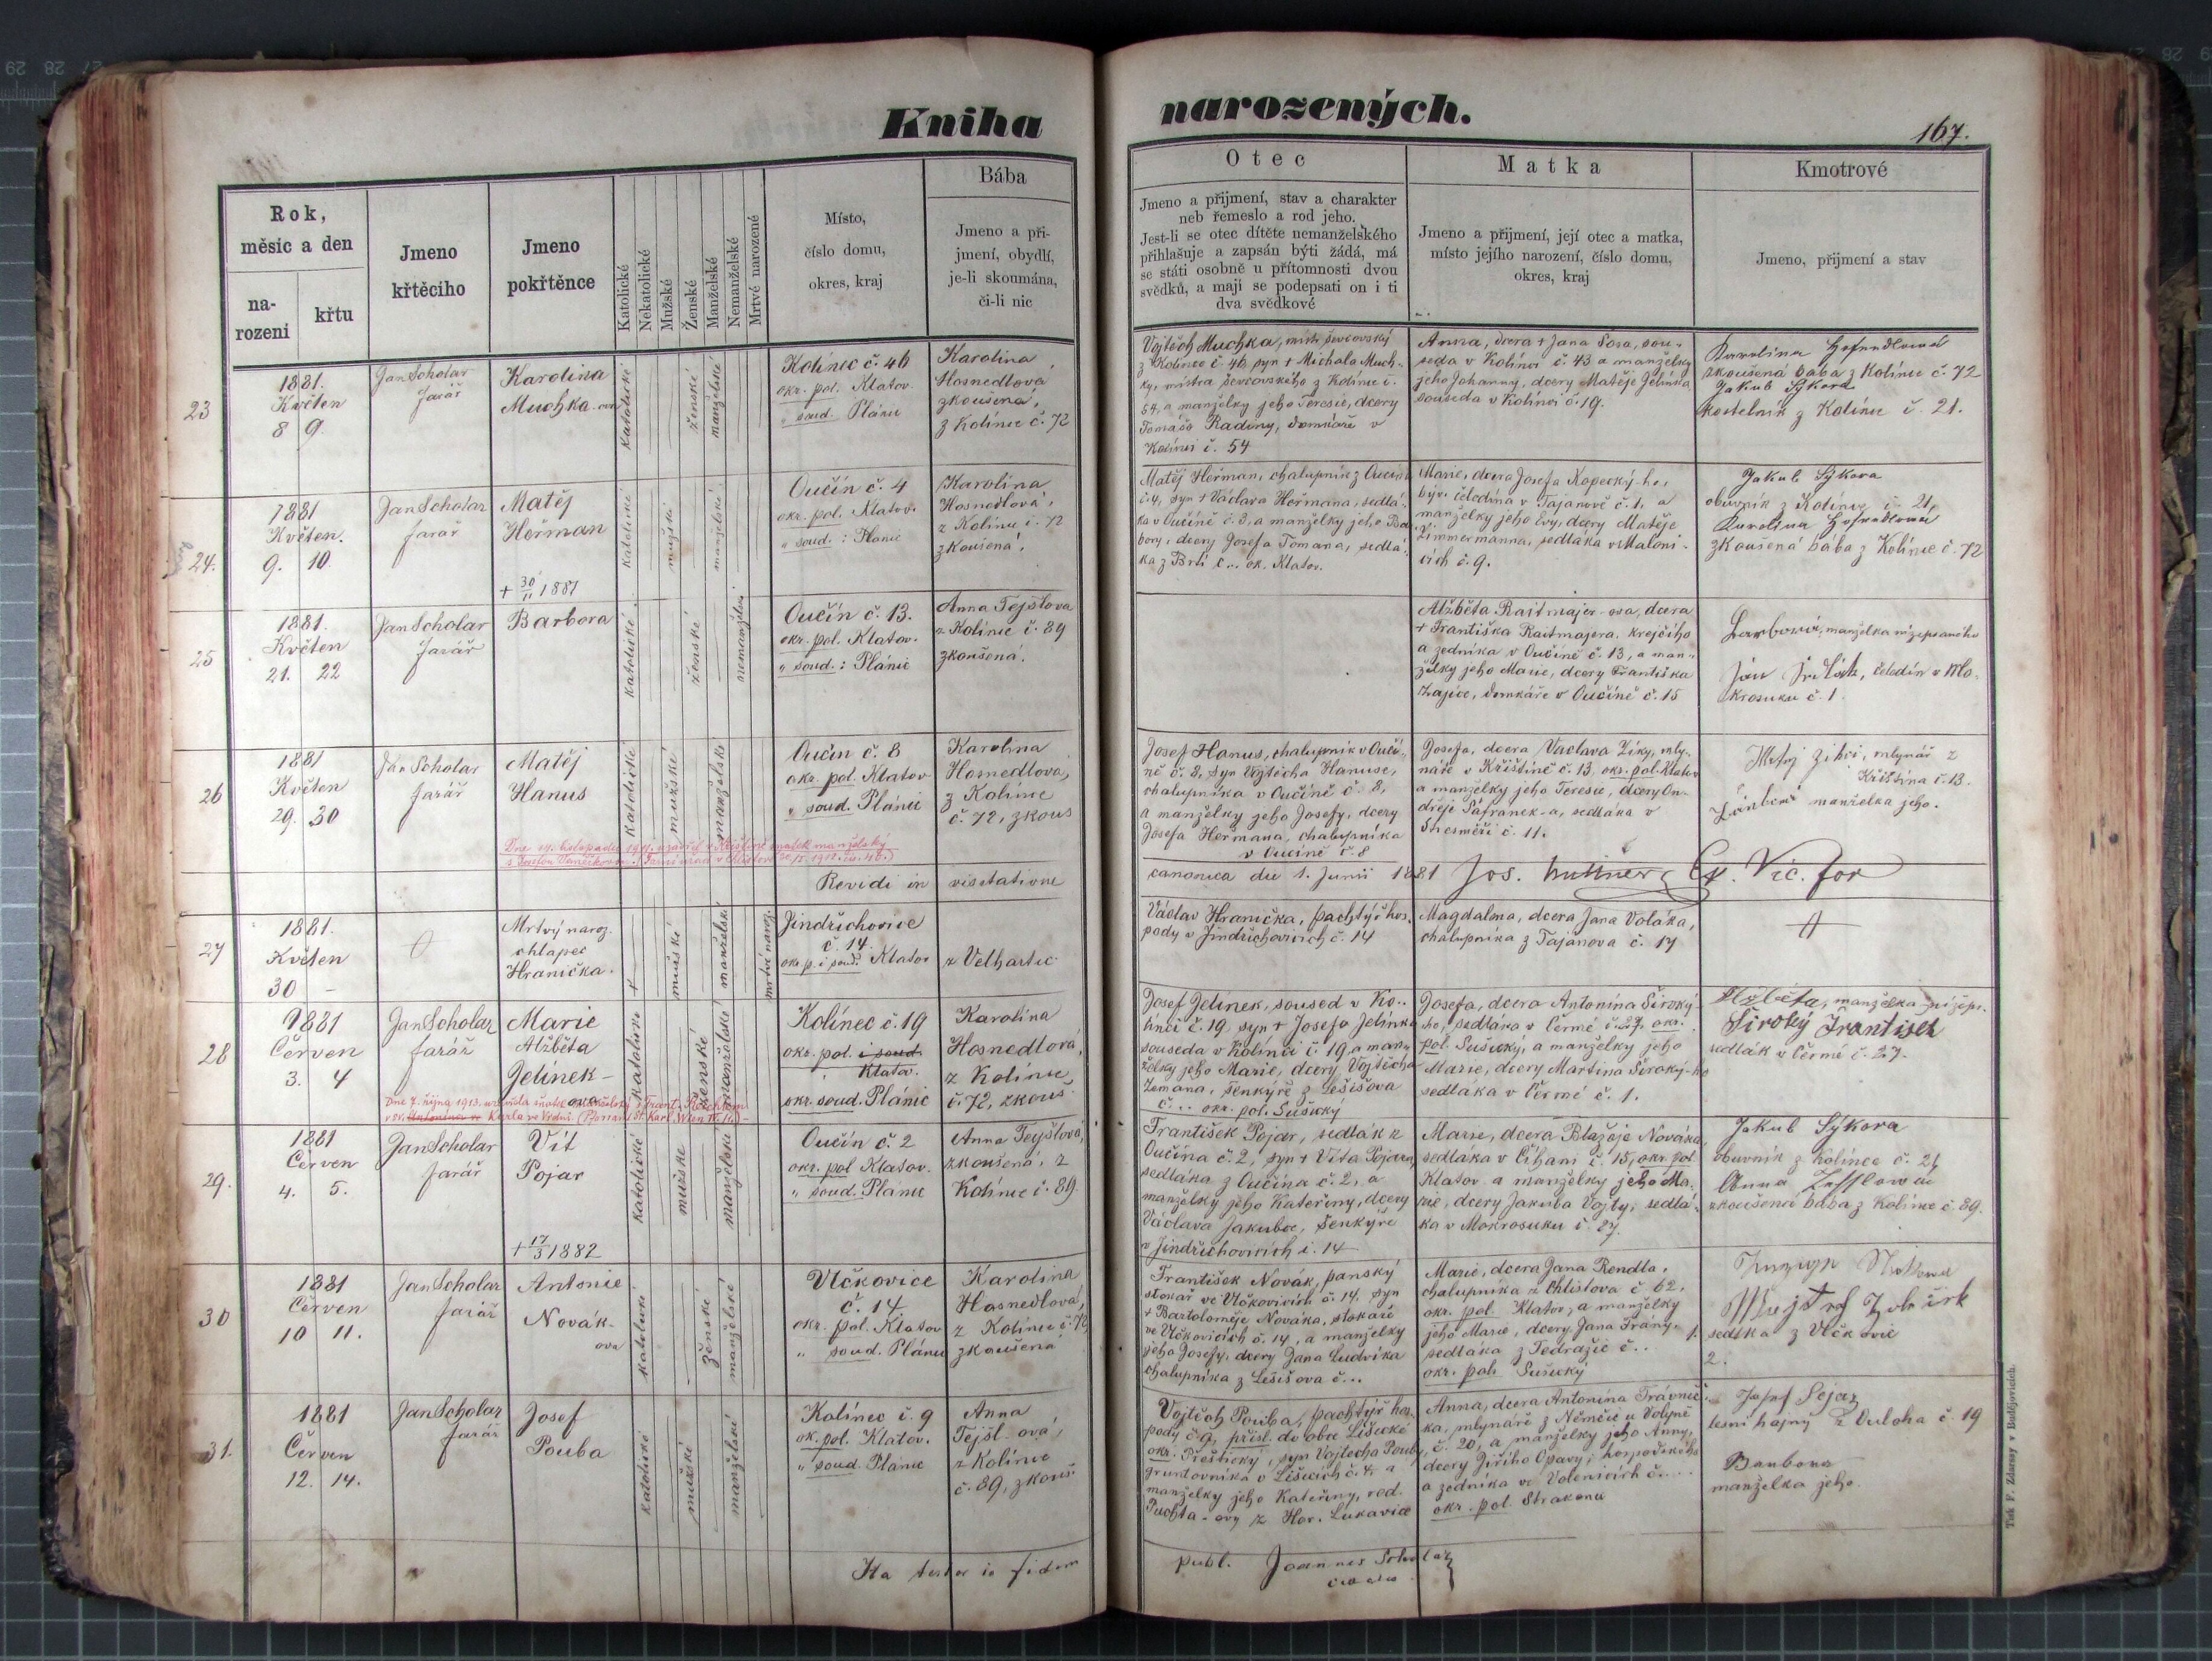 Kniha narozených.
167.
Rok,
měsíc a den
na-
rozeni
křtu
Jmeno
křtěcího
Jmeno
pokřtěnce
Katolické
Nekatolické
Mužské
Ženské
Manželské
Nemanželské
Mrtvé narozené
Místo,
číslo domu,
okres, kraj
Bába
Jmeno a při-
jmení, obydlí,
je-li skoumána,
či-li nic
Otec
Jmeno a přijmení, stav a charakter
neb řemeslo a rod jeho.
Jest-li se otec dítěte nemanželského
přihlašuje a zapsán býti žádá, má
se státi osobně u přítomnosti dvou
svědků, a mají se podepsati on i ti
dva svědkové
Matka
Jmeno a přijmení, její otec a matka,
místo jejího narození, číslo domu,
okres, kraj
Kmotrové
Jmeno, přijmení a stav
23
1881.
Květen
8 9.
Jan Scholar
farář
Karolina
Muchka-ova
katolické
ženské
manželské
Kolinec č. 46
okr. pol. Klatov
" soud. Plánic
Karolina
Hosnedlová
zkoušená,
z Kolince č. 72
Vojtěch Muchka, mistr ševcovský
z Kolince č. 46, syn + Michala Much-
ky, mistra ševcovského z Kolince č.
54, a manželky jeho Teresie, dcery
Tomáše Radiny, domkáře v
Kolinci č. 54
Anna, dcera + Jana Sora, sou-
seda v Kolinci č. 43 a manželky
jeho Johanny, dcery Matěje Jelínka
souseda v Kolinci č. 19.
Karolina Hosnedlowá
zkoušená baba z Kolince č. 72
Jakub Sýkora
kostelník z Kolince č. 21.
24.
1881
Květen.
9. 10.
Jan Scholar
farář
Matěj
Heřman
+ 30/11 1881
katolické
mužské
manželské
Oučín č. 4
okr. pol. Klatov.
" soud.: Plánic
Karolina
Hosnedlová,
z Kolince č. 72
zkoušená.
Matěj Heřman, chalupník z Oučína
č. 4, syn + Václava Heřmana, sedlá-
ka v Oučíně č. 3, a manželky jeho Bar
bory, dcery Josefa Tomana, sedlá-
ka z Brti č... ok. Klatov.
Marie, dcera Josefa Kopecký-ho,
býv. čeledína v Tajanově č. 1, a
manželky jeho Evy, dcery Matěje
Zimmermanna, sedláka v Maloni-
cích č. 9.
Jakub Sýkora
obuvník z Kolince č. 21,
Karolina Hosnedlowa
zkoušená bába z Kolince č. 72
25
1881.
Květen
21. 22
Jan Scholar
farář
Barbora
katolické
ženské
nemanželské
Oučín č. 13.
okr. pol. Klatov.
" soud.: Plánic
Anna Tejslova
z Kolince č. 89
zkoušená.
Alžběta Raitmajer-ova, dcera
+ Františka Raitmajera, krejčího
a zedníka v Oučíně č. 13, a man-
želky jeho Marie, dcery Františka
Zajíce, domkáře v Oučíně č. 15
manželka nížepsaného
čeledín v Mo-
krosuku č. 1.
26
1881
Květen
29. 30
Jan Scholar
farář
Matěj
Hanus
katolické
mužské
manželské
Oučín č. 8
okr. pol. Klatov
" soud. Plánic
Karolina
Hosnedlová,
z Kolince
č. 72, zkouš
Josef Hanus, chalupník v Oučí-
ně č. 8, syn Vojtěcha Hanuse,
chalupníka v Oučíně č. 8,
a manželky jeho Josefy, dcery
Josefa Heřmana, chalupníka
v Oučíně č. 8
Josefa, dcera Václava Ziky, mly-
náře v Křištíně č. 13, okr. pol. Klatov
a manželky jeho Teresie, dcery On-
dřeje Šafránek-a, sedláka v
č. 11.
mlynář z
Křištína č. 13.
manželka jeho.
Revidi in visitatione canonica die 1. Junii 1881
27
1881.
Květen
30 -
Mrtvý naroz.
chlapec
Hranička.
mužské
manželské
mrtvě naroz.
Jindřichovice
č. 14.
okr. p. i soud. Klatov
z Velhartic
Václav Hranička, pachtýř hos-
pody v Jindřichovicích č. 14
Magdalena, dcera Jana Voláka,
chalupníka z Tajanova č. 17
28
1881
Červen
3. 4
Jan Scholar
farář
Marie
Alžběta
Jelínek-
ova
katolické
ženské
manželské
Kolínec č. 19
okr. pol. i soud.
Klatov.
okr. soud. Plánic
Karolina
Hosnedlová,
z Kolince,
č. 72, zkouš
Josef Jelínek, soused v Ko-
linci č. 19, syn + Josefa Jelínka
souseda v Kolinci č. 19, a man-
želky jeho Marie, dcery Vojtěcha
Zemana, šenkýře z Lešišova
č... okr. pol. Sušický
Josefa, dcera Antonína Široký-
ho, sedláka v Čermé č. 27, okr.
pol. Sušický, a manželky jeho
Marie, dcery Martina Široký-ho
sedláka v Čermé č. 1.
Alžběta, manželka nížeps.
Široký František
sedlák v Čermé č. 27.
29.
1881
Červen
4. 5.
Jan Scholar
farář
Vít
Pojar
+ 17/3 1882
katolické
mužské
manželské
Oučín č. 2
okr. pol Klatov.
" soud. Plánic
Anna Tejslová,
zkoušená, z
Kolince č. 89.
František Pojar, sedlák z
Oučína č. 2, syn + Víta Pojara,
sedláka z Oučína č. 2, a
manželky jeho Kateřiny, dcery
Václava Jakubce, šenkýře
v Jindřichovicích č. 14
Marie, dcera Blažeje Nováka,
sedláka v Číhani č. 15, okr. pol
Klatov a manželky jeho Ma-
rie, dcery Jakuba Vojty, sedlá-
ka v Mokrosuku č. 27.
Jakub Sýkora
obuvník z Kolince č. 21,
Anna
zkoušená bába z Kolince č. 89.
30
1881
Červen
10 11.
Jan Scholar
farář
Antonie
Novák-
ova
katolické
ženské
manželské
Vlčkovice
č. 14
okr. pol. Klatov
" soud. Plánic
Karolina
Hosnedlová,
z Kolince č. 72
zkoušená
František Novák, panský
stokař ve Vlčkovicích č. 14, syn
+ Bartoloměje Nováka, stokaře
ve Vlčkovicích č. 14, a manželky
jeho Josefy, dcery Jana Ludvíka
chalupníka z Lešišova č...
Marie, dcera Jana Rendla,
chalupníka z Chlistova č. 62,
okr. pol. Klatov, a manželky
jeho Marie, dcery Jana Frány,
sedláka z Tedražic č..
okr. pol. Sušický
sedlka z Vlčkovic
31.
1881
Červen
12. 14.
Jan Scholar
farář
Josef
Pouba
katolické
mužské
manželské
Kolínec č. 9
ok. pol. Klatov.
" soud. Plánic
Anna
Tejsl-ová,
z Kolince
č. 89, zkouš.
Vojtěch Pouba, pachtýř hos-
pody č. 9, přísl. do obce Lišické
okr. Přeštický, syn Vojtěcha Pouby,
gruntovníka v Lišicích č. 4, a
manželky jeho Kateřiny, rod.
Puchta-ovy z Hor. Lukavice
Anna, dcera Antonína Trávníč-
ka, mlynáře z Němčic u Volyně
č. 20, a manželky jeho Anny,
dcery Jiřího Opavy, hospodského
a zedníka ve Volenicích č....
okr. pol. Strakonic
Josef
lesní hajný z Ouloha č. 19
Barbora
manželka jeho.
Ita testor in fidem publ. Joannes Scholaz
Tisk F. Zdarssy v Budějovicích.